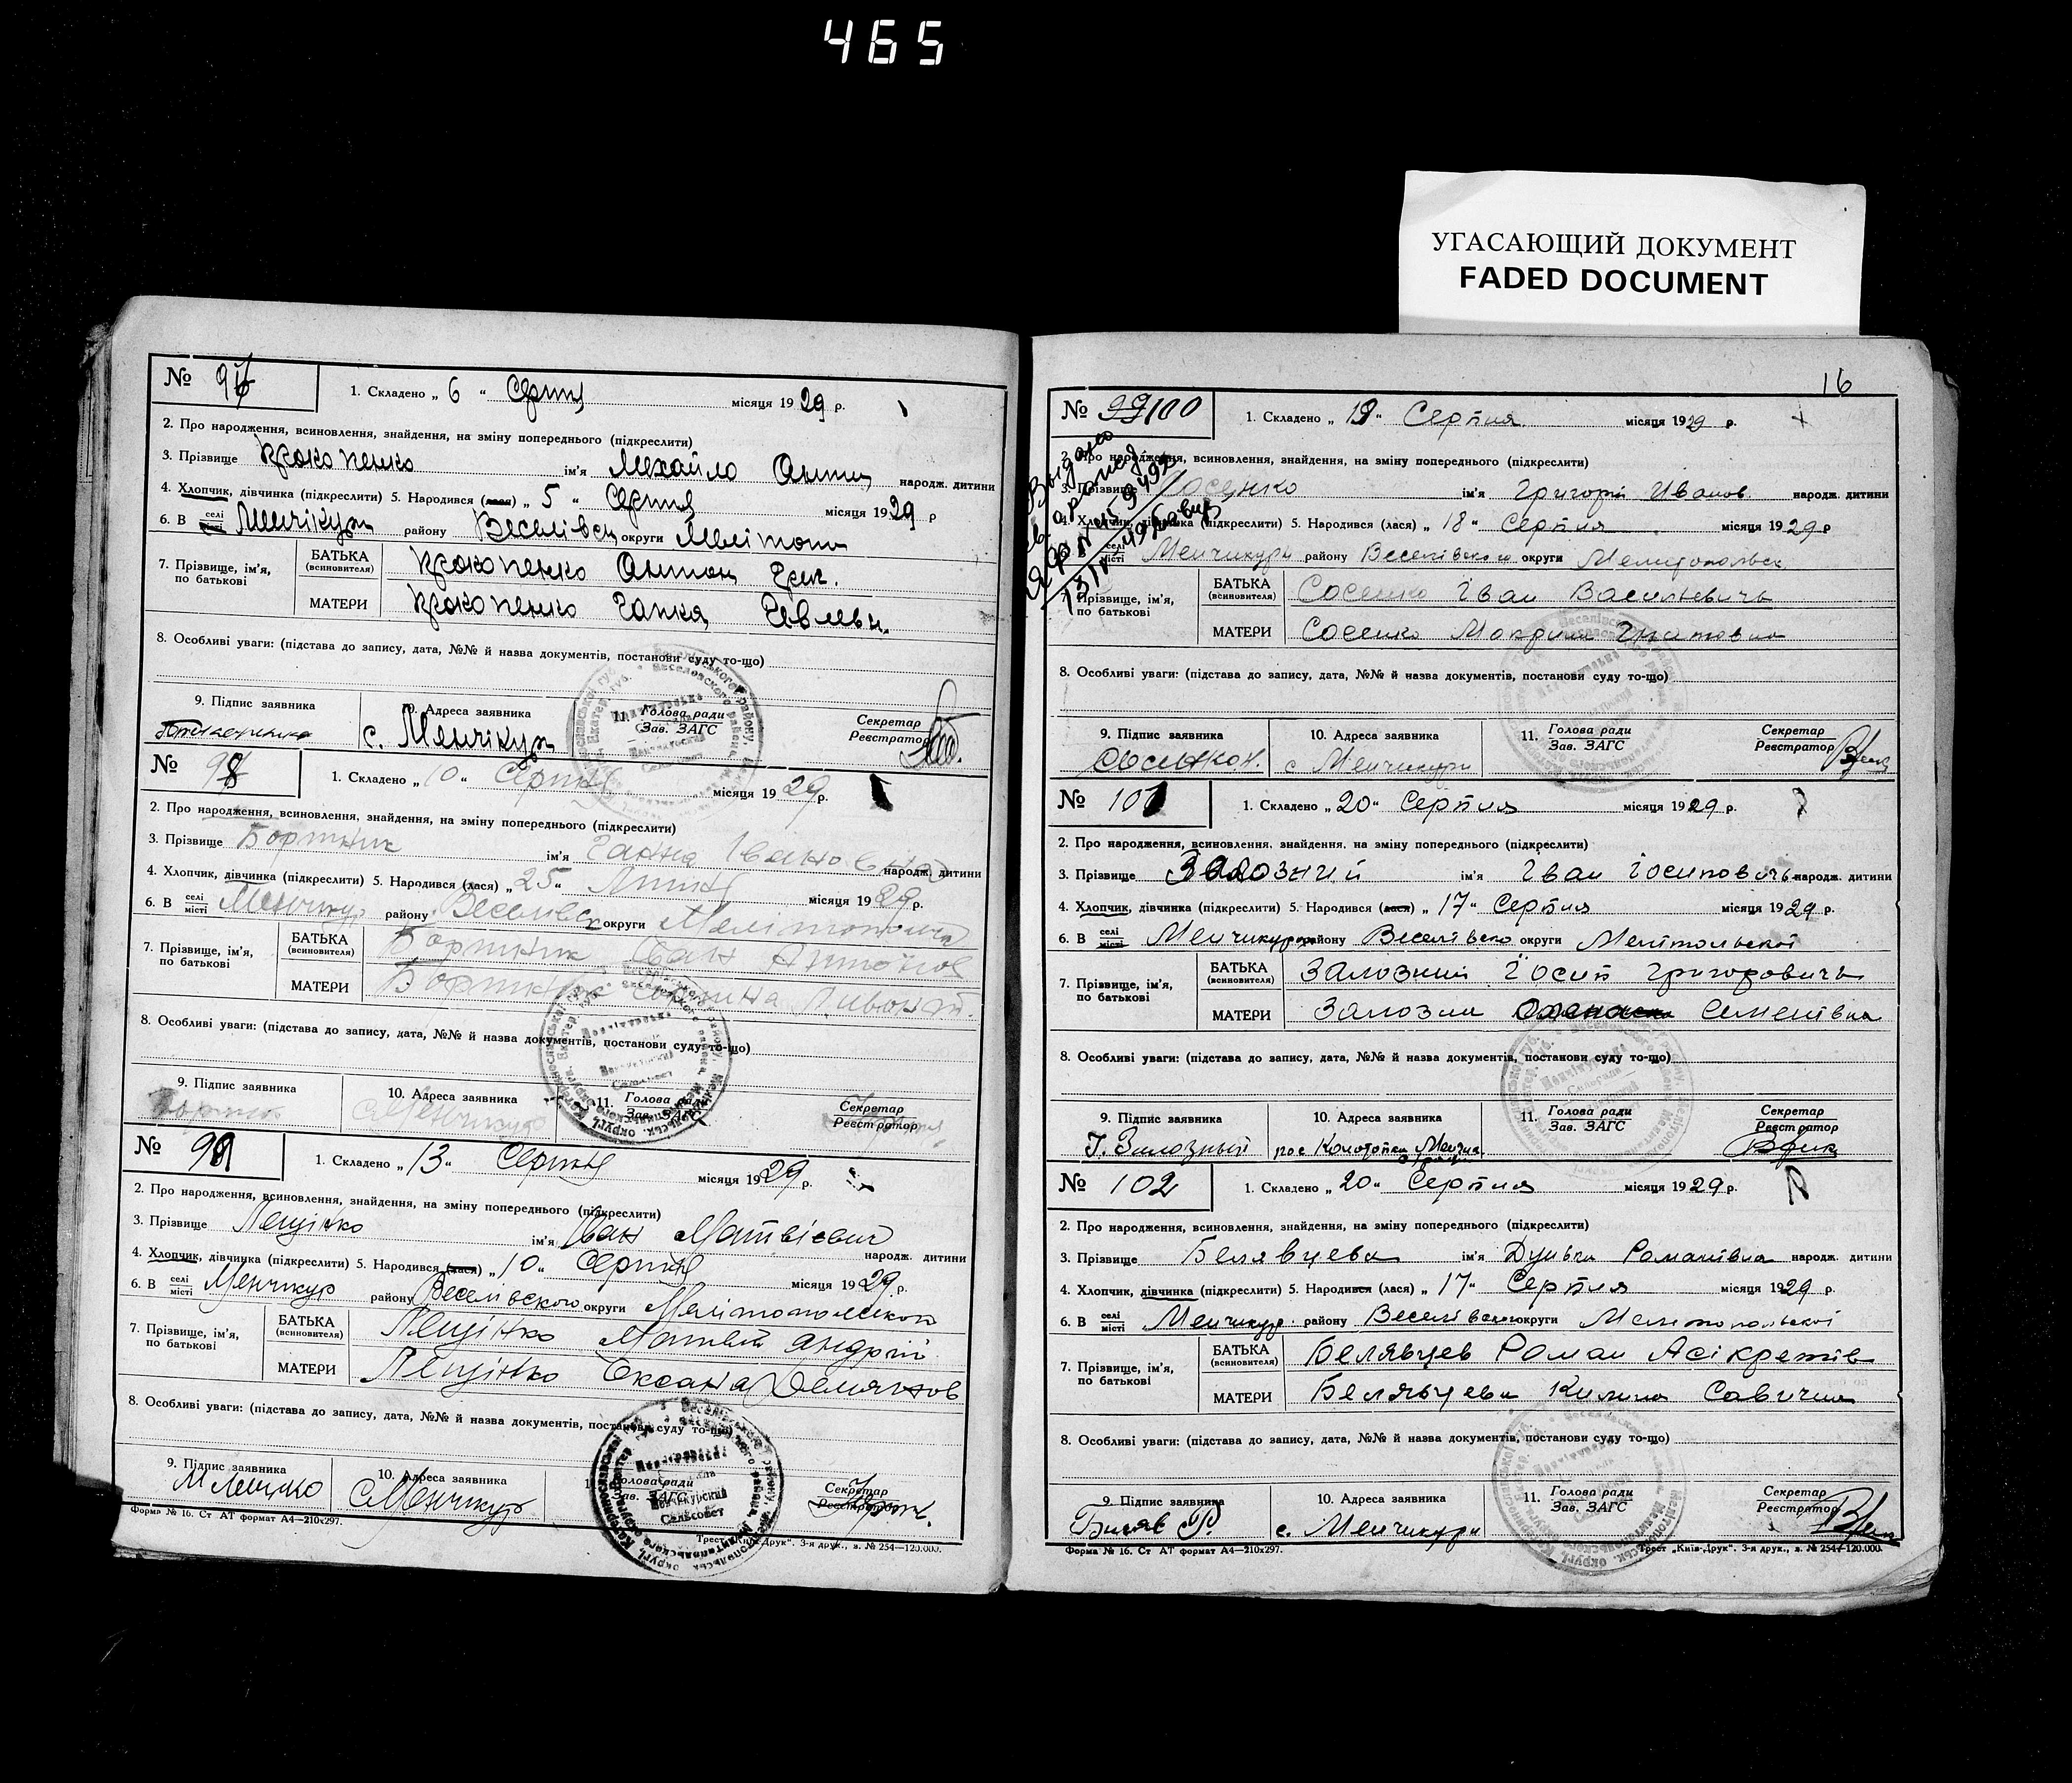 465
УГАСАЮЩИЙ ДОКУМЕНТ
FADED DOCUMENT
№ 97
1. Складено „ 6 “ Серпня місяця 1929 р.
2. Про народження, всиновлення, знайдення, на зміну попереднього (підкреслити)
3. Прізвище Прокопенко ім'я Михайло Антон народж. дитини
4. Хлопчик, дівчинка (підкреслити) 5. Народився (лася) „ 5 “ Серпня місяця 1929 р
6. В селі місті Менчікури району Веселівськ округи Мелітопол
7. Прізвище, ім'я, по батькові
БАТЬКА (всиновителя) Прокопенко Антон Григ.
МАТЕРИ Прокопенко Гапка
8. Особливі уваги: (підстава до запису, дата, №№ й назва документів, постанови суду то-що)
9. Підпис заявника
Адреса заявника с. Менчікури
11. Голова ради Зав. ЗАГС
Секретар Реєстратор
№ 98
1. Складено „ 10 “ Серпня місяця 1929 р.
2. Про народження, всиновлення, знайдення, на зміну попереднього (підкреслити)
3. Прізвище Бортник ім'я Ганна Івановна народж. дитини
4. Хлопчик, дівчинка (підкреслити) 5. Народився (лася) „ 25 “ Липня місяця 1929 р.
6. В селі місті Менчикур району Веселівськ округи Мелітопольск
7. Прізвище, ім'я, по батькові
БАТЬКА (всиновителя) Бортник Іван Антонов
МАТЕРИ Бортник
8. Особливі уваги: (підстава до запису, дата, №№ й назва документів, постанови суду то-що)
9. Підпис заявника Бортник
10. Адреса заявника с. Менчикур
11. Голова ради Зав. ЗАГС
Секретар Реєстратор
№ 99
1. Складено „ 13 “ Серпня місяця 1929 р.
2. Про народження, всиновлення, знайдення, на зміну попереднього (підкреслити)
3. Прізвище Лещінко ім'я Іван Матвієвич народж. дитини
4. Хлопчик, дівчинка (підкреслити) 5. Народився (лася) „ 10 “ Серпня місяця 1929 р.
6. В селі місті Менчикур району Веселівского округи Мелітопольского
7. Прізвище, ім'я, по батькові
БАТЬКА (всиновителя) Лещінко Матвій Андрій
МАТЕРИ Лещінко Оксана Демянов
8. Особливі уваги: (підстава до запису, дата, №№ й назва документів, постанови суду то-що)
9. Підпис заявника М Лещико
10. Адреса заявника с. Менчикур
Голова ради Зав. ЗАГС
Секретар Реєстратор
Форма № 16. Ст АТ формат А4—210х297.
Трест „Київ-Друк“. 3-я друк., з. № 254—120.000.
16
№ 99 100
1. Складено „ 19 “ Серпня місяця 1929 р.
Про народження, всиновлення, знайдення, на зміну попереднього (підкреслити)
3. Прізвище Сосенко ім'я Григорій Иванов. народж. дитини
4. Хлопчик, дівчинка (підкреслити) 5. Народився (лася) „ 18 “ Серпня місяця 1929 р
селі місті Менчикури району Веселівского округи Мелитопольск
7. Прізвище, ім'я, по батькові
БАТЬКА (всиновителя) Сосенко Іван Васильевичь
МАТЕРИ Сосенко Мокрина Гнатовна
8. Особливі уваги: (підстава до запису, дата, №№ й назва документів, постанови суду то-що)
9. Підпис заявника
10. Адреса заявника с Менчикури
11. Голова ради Зав. ЗАГС
Секретар Реєстратор
№ 101
1. Складено „ 20 “ Серпня місяця 1929 р.
2. Про народження, всиновлення, знайдення, на зміну попереднього (підкреслити)
3. Прізвище Залозний ім'я Іван Іосиповичь народж. дитини
4. Хлопчик, дівчинка (підкреслити) 5. Народився (лася) „ 17 “ Серпня місяця 1929 р.
6. В селі місті Менчикури району Веселівско округи Мелітольскої
7. Прізвище, ім'я, по батькові
БАТЬКА (всиновителя) Залозний Іосип Григоровичь
МАТЕРИ Залозна Семенівна
8. Особливі уваги: (підстава до запису, дата, №№ й назва документів, постанови суду то-що)
9. Підпис заявника І. Залозный
10. Адреса заявника
11. Голова ради Зав. ЗАГС
Секретар Реєстратор
№ 102
1. Складено „ 20 “ Серпня місяця 1929 р.
2. Про народження, всиновлення, знайдення, на зміну попереднього (підкреслити)
3. Прізвище Белявцева ім'я Дунька Романівна народж. дитини
4. Хлопчик, дівчинка (підкреслити) 5. Народився (лася) „ 17 “ Серпня місяця 1929 р.
6. В селі місті Менчикур. району Веселівского округи Мелитопольскої
7. Прізвище, ім'я, по батькові
БАТЬКА (всиновителя) Белявцев Роман Асікретів
МАТЕРИ Белявцева Килина Савична
8. Особливі уваги: (підстава до запису, дата, №№ й назва документів, постанови суду то-що)
9. Підпис заявника
10. Адреса заявника с. Менчикури
11. Голова ради Зав. ЗАГС
Секретар Реєстратор
Форма № 16. Ст АТ формат А4—210х297.
Трест „Київ-Друк“. 3-я друк., з. № 254—120.000.